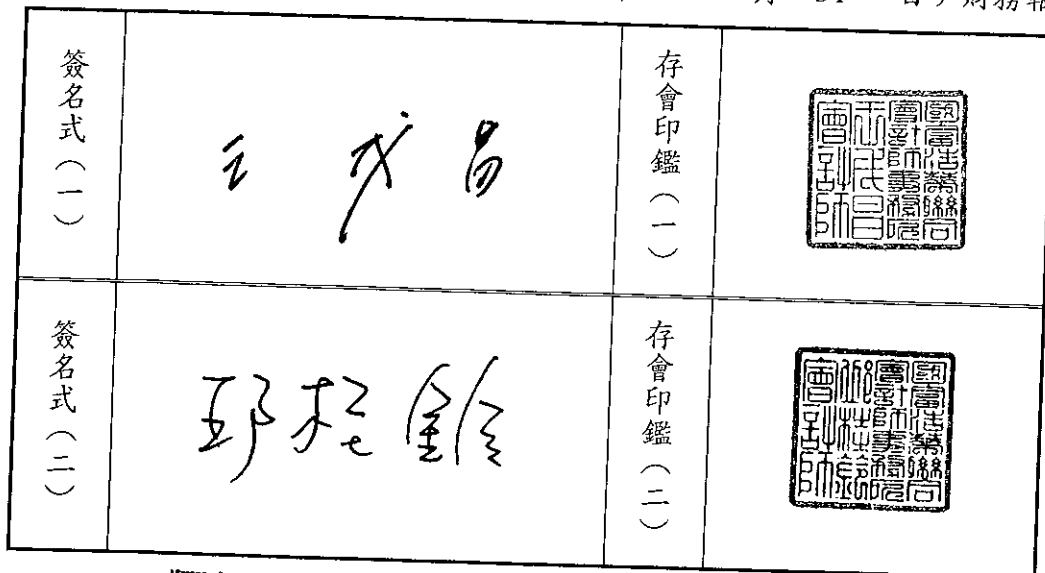 月 31 日)財務報
簽名式(一)
王戊昌
存會印鑑(一)
國富浩華聯合
會計師事務所
王戊昌
會計師
簽名式(二)
邱桂鈴
存會印鑑(二)
國富浩華聯合
會計師事務所
邱桂鈴
會計師